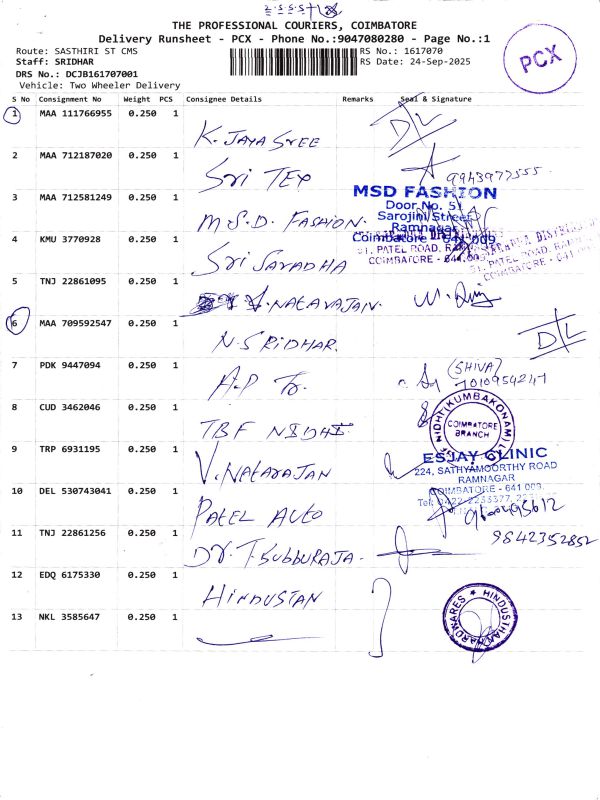 THE PROFESSIONAL COURIERS, COIMBATORE
Delivery Runsheet - PCX - Phone No.:9047080280 - Page No.:1
Route: SASTHIRI ST CMS
RS No.: 1617070
Staff: SRIDHAR
RS Date: 24-Sep-2025
DRS No.: DCJB161707001
Vehicle: Two Wheeler Delivery
PCX
S No Consignment No Weight PCS Consignee Details Remarks Seal & Signature
1 MAA 111766955 0.250 1 K. JAYA SREE D/L
2 MAA 712187020 0.250 1 Sri TEX 9943977555
3 MAA 712581249 0.250 1 M.S.D. FASHION.
MSD FASHION
Door No. 51
Sarojini Street
Ramnagar
Coimbatore - 641 009.
4 KMU 3770928 0.250 1 Sri SARADHA
51, PATEL ROAD, RAM
COIMBATORE - 641.009
5 TNJ 22861095 0.250 1 V. NATARAJAN.
6 MAA 709592547 0.250 1 N. SRIDHAR. D/L
7 PDK 9447094 0.250 1 A.P Tr. (SHIVA)
7010954247
8 CUD 3462046 0.250 1 TBF NIDHI
NIDHI (KUMBAKONAM) L
COIMBATORE
BRANCH
9 TRP 6931195 0.250 1 V. NATARAJAN
ESJAY CLINIC
224, SATHYAMOORTHY ROAD
RAMNAGAR
COIMBATORE - 641 009.
10 DEL 530743041 0.250 1 PATEL AUTO 9600495612
11 TNJ 22861256 0.250 1 DR. T. SUBBURAJA. 9842352852
12 EDQ 6175330 0.250 1 HINDUSTAN
HINDUSTHAN HARDWARES
13 NKL 3585647 0.250 1